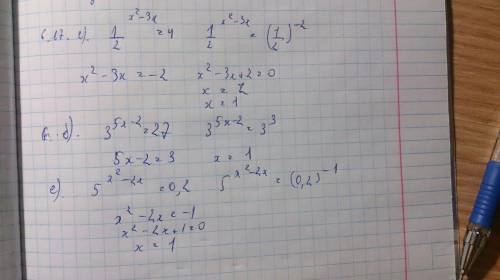 6.17. г). 1/2^(x²-3x) = 4   1/2^(x²-3x) = (1/2)^-2
x² - 3x = -2   x² - 3x + 2 = 0
x = 2
x = 1
б). 3^(5x-2) = 27   3^(5x-2) = 3^3
5x - 2 = 3   x = 1
е). 5^(x²-2x) = 0,2   5^(x²-2x) = (0,2)^-1
x² - 2x = -1
x² - 2x + 1 = 0
x = 1